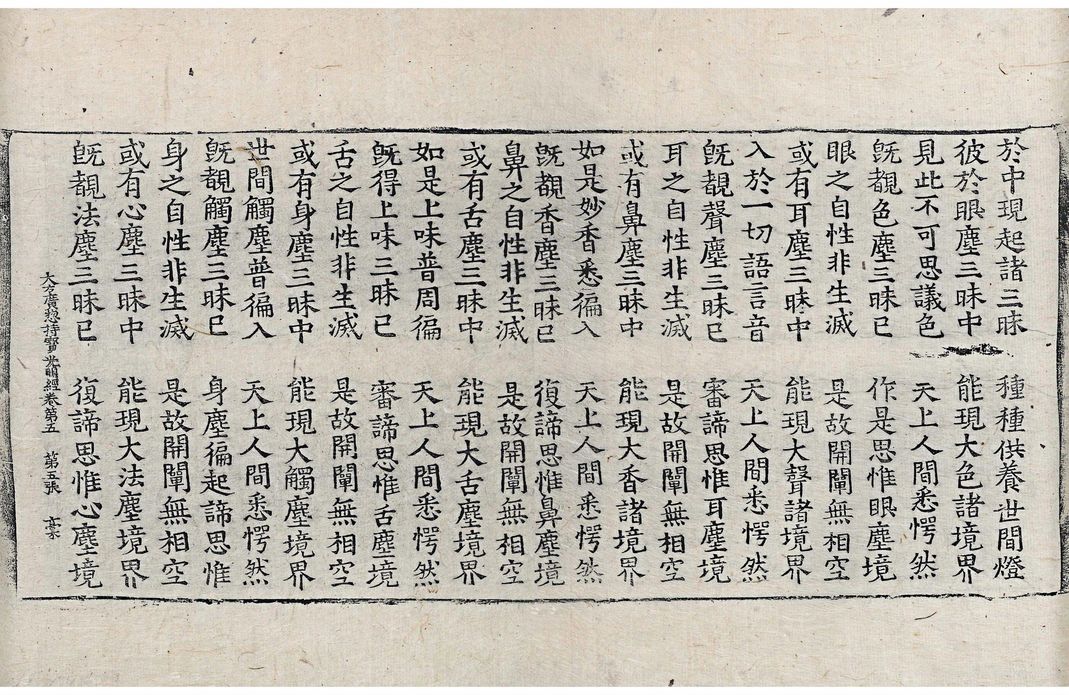 於中現起諸三昧　種種供養世間燈
彼於眼塵三昧中　能現大色諸境界
見此不可思議色　天上人間悉愕然
旣覩色塵三昧已　作是思惟眼塵境
眼之自性非生滅　是故開闡無相空
或有耳塵三昧中　能現大聲諸境界
入於一切語言音　天上人間悉愕然
旣覩聲塵三昧已　審諦思惟耳塵境
耳之自性非生滅　是故開闡無相空
或有鼻塵三昧中　能現大香諸境界
如是妙香悉徧入　天上人間悉愕然
旣覩香塵三昧已　復諦思惟鼻塵境
鼻之自性非生滅　是故開闡無相空
或有舌塵三昧中　能現大舌塵境界
如是上味普周徧　天上人間悉愕然
旣得上味三昧已　審諦思惟舌塵境
舌之自性非生滅　是故開闡無相空
或有身塵三昧中　能現大觸塵境界
世間觸塵普徧入　天上人間悉愕然
旣覩觸塵三昧已　身塵徧起諦思惟
身之自性非生滅　是故開闡無相空
或有心塵三昧中　能現大法塵境界
旣覩法塵三昧已　復諦思惟心塵境
大方廣揔持寶光明經卷第五　第五張　槀